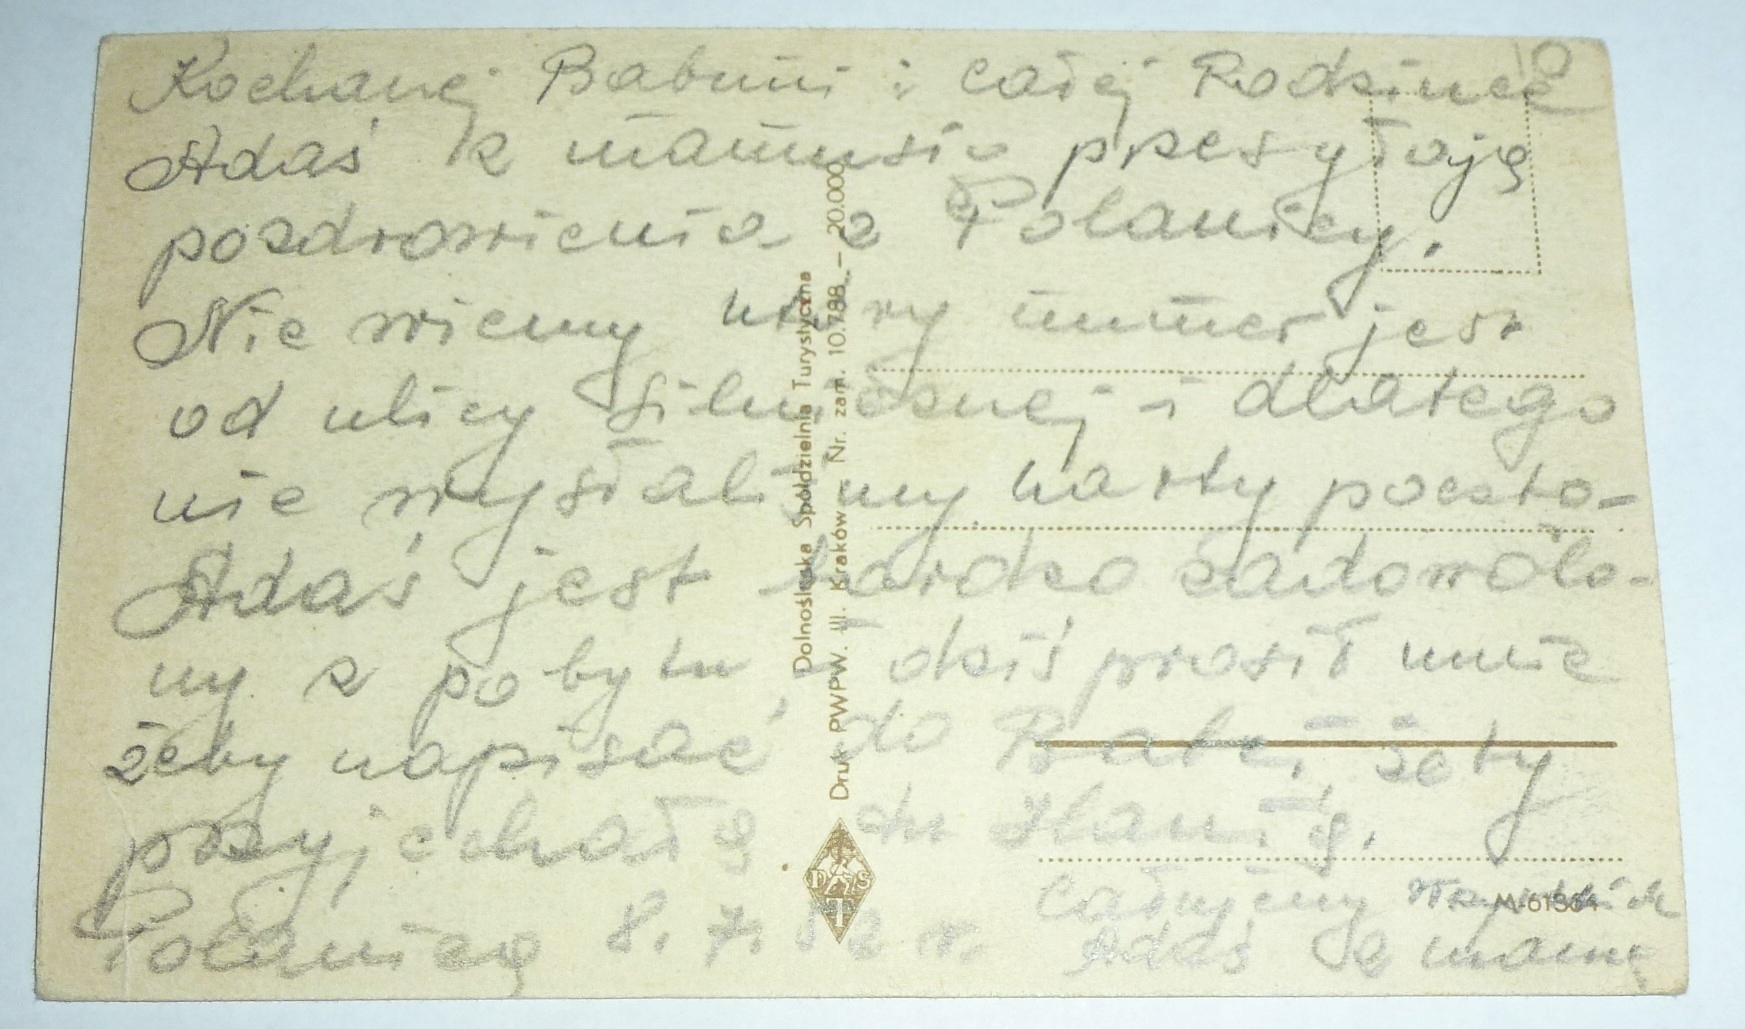 Kochanej Babuni i całej Rodzince
Adaś z mamusią przesyłają
pozdrowienia z Polanicy.
Nie wiemy który numer jest
od ulicy i dlatego
nie wysłaliśmy karty poczto-
Adaś jest bardzo zadowolo-
ny z pobytu, dziś prosił mnie
żeby napisać do Babci żeby
przyjechała
Całujemy wszystkich
Polanica 8.7.52 r.
Adaś z mamą
Dolnośląska Spółdzielnia Turystyczna
Druk PWPW. III. Kraków Nr. zam. 10.788. – 20.000
D S
T